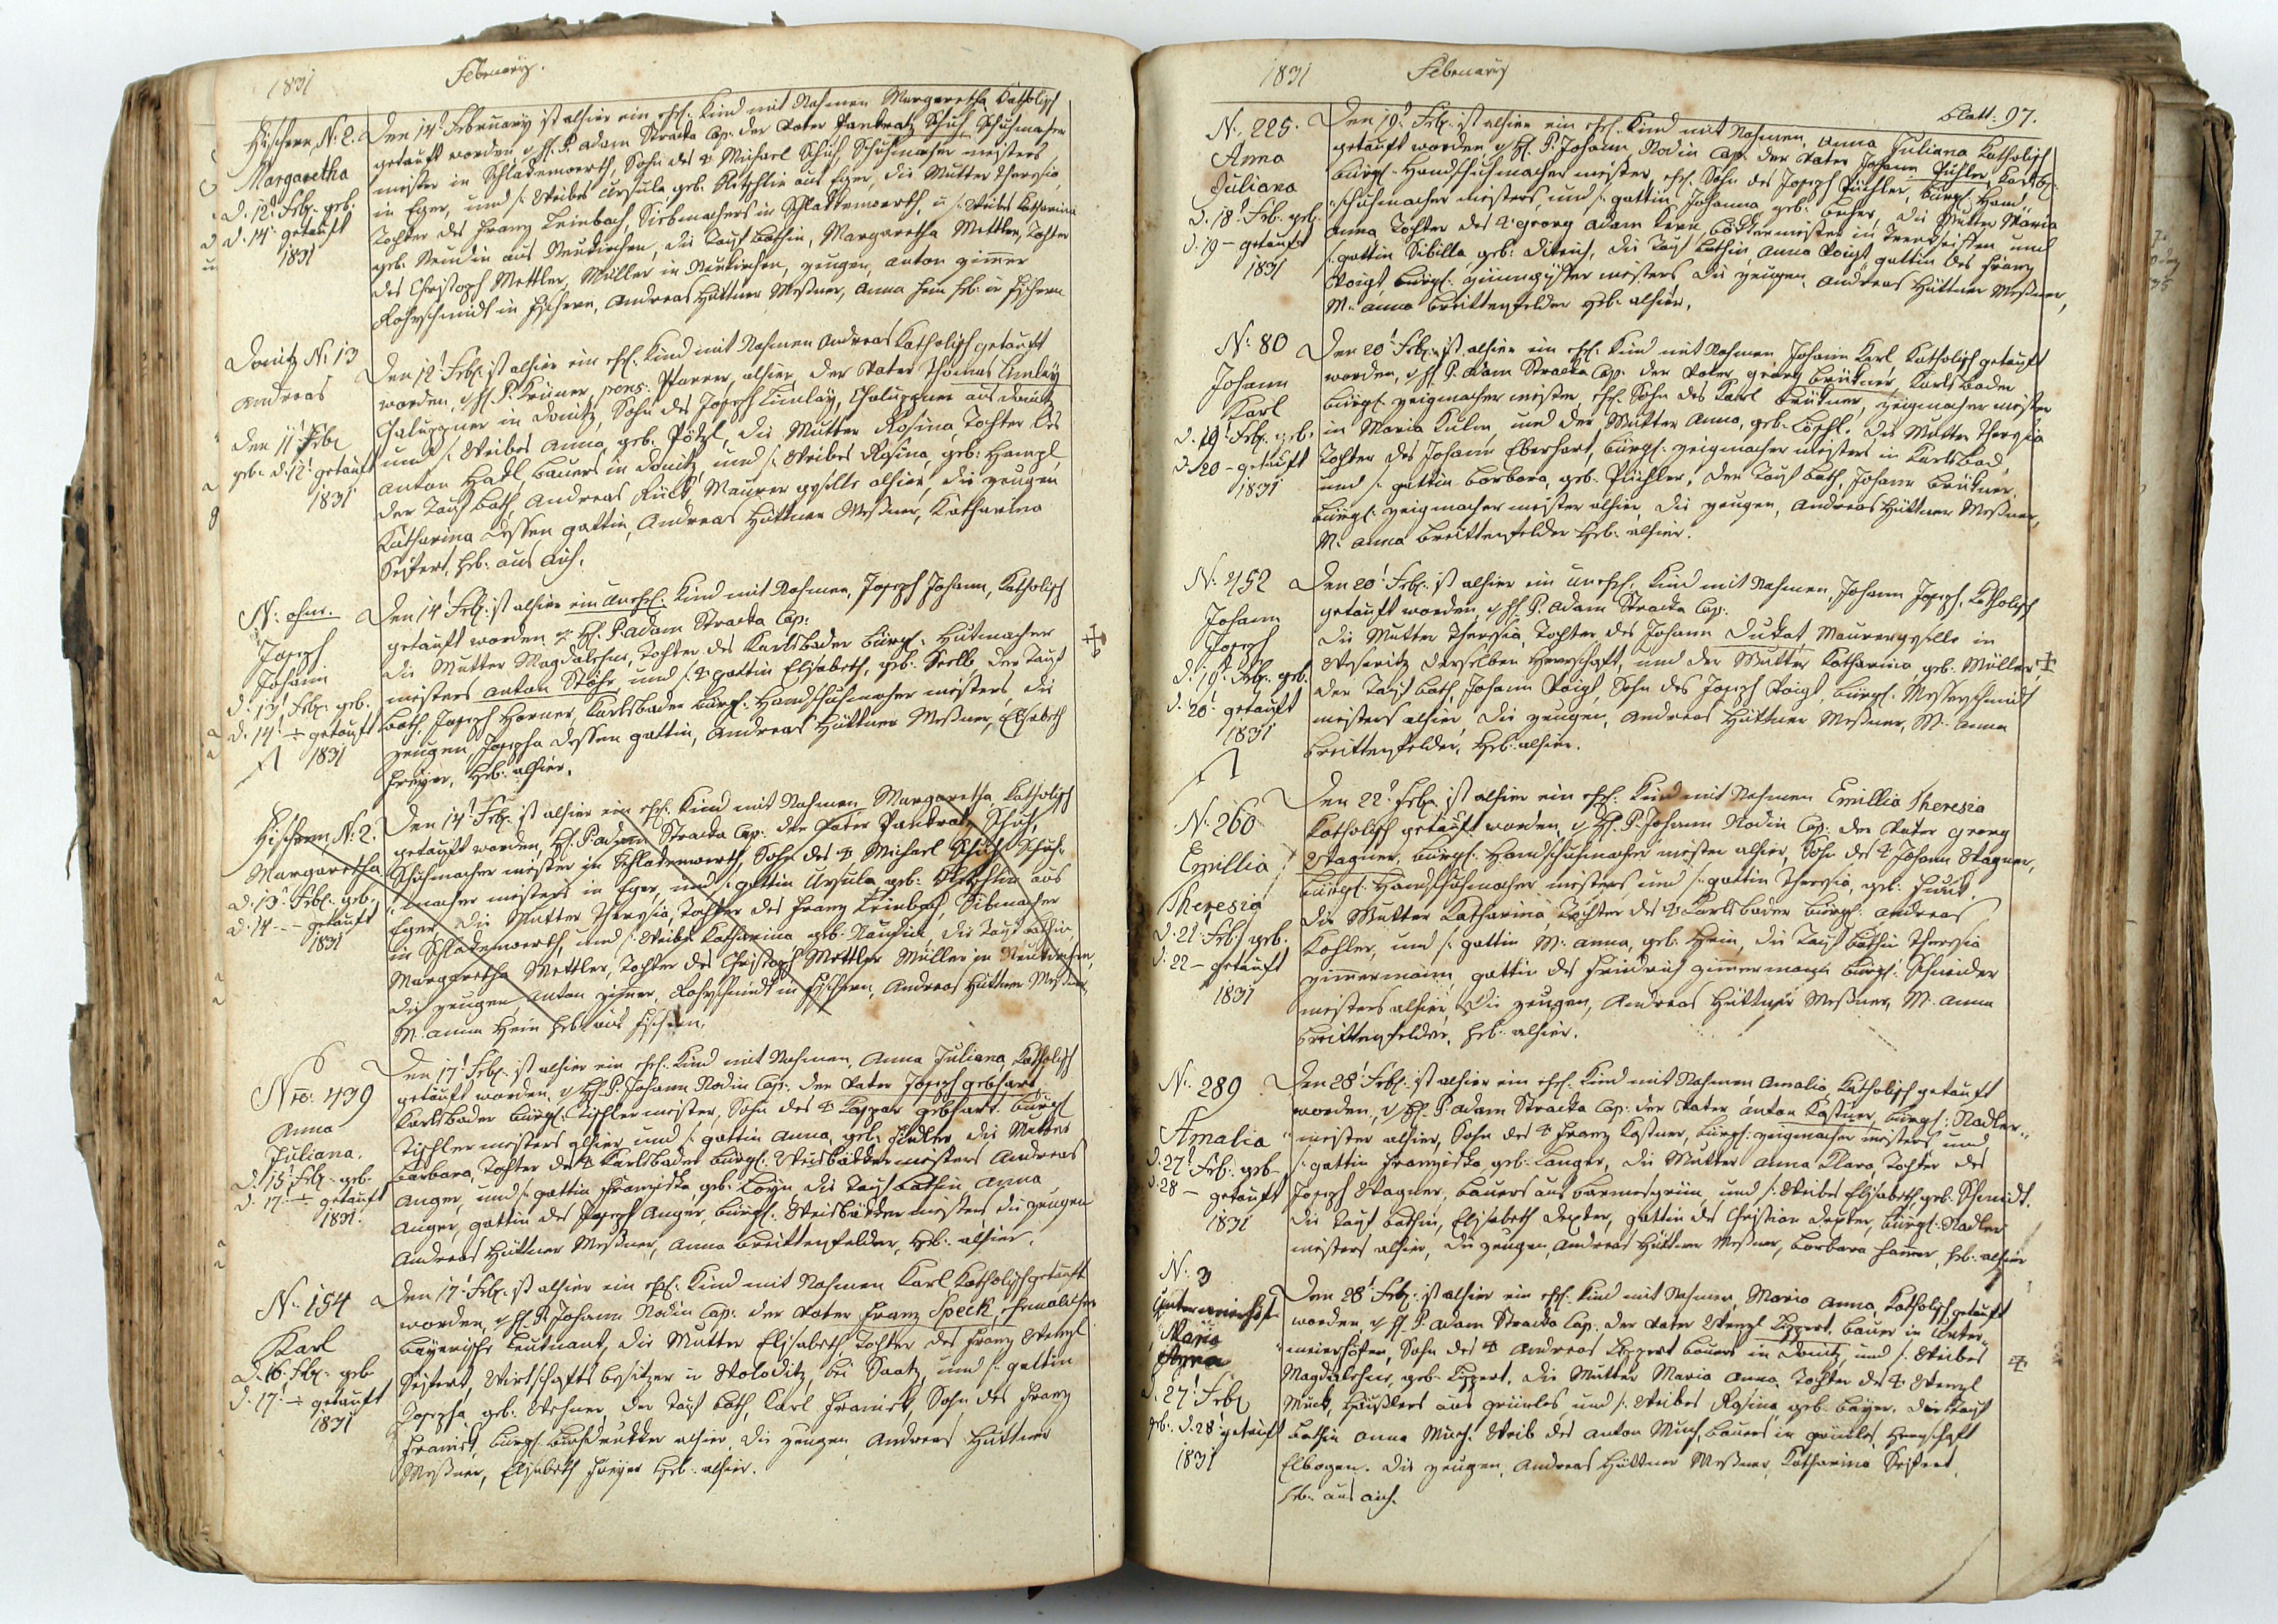 1831 February.
Fischern N. 2.
Margaretha
d. 12t Feb. geb.
d. 14t getauft
1831
Den 14t February ist alhier ein ehl. Kind mit Nahmen Margaretha Katholisch
getauft worden, v H. P. Adam Stracka Cap. der Vater Pankratz Schuh, Schuhmacher
meister in Schlackenwerth, Sohn des Michael Schuh Schuhmacher meisters
in Eger, und s. Weibes Ursula geb. aus Eger, die Mutter Theresia
Tochter des Franz Leinbach, Siebmachers in Schlackenwerth, u s. Weibes Katharina
geb. aus Neukirchen, die Tauf Bathin, Margaretha Mettler, Tochter
des Christoph Mettler, Müller in Neukirchen, zeugen, Anton Zimer
Rohrschmidt in Fischern, Andreas Hüttner Meßner, Anna Hein Heb. in Fischern
Donitz N. 13
Andreas
den 11t Feb.
geb. d. 12t getauft
1831
Den 12t Feb. ist alhier ein ehl. Kind mit Nahmen Andreas Katholisch getauft
worden, v H. P. Krüner, pens. Pfarrer, alhier, der Vater Thomas Limläy
Chaluppner in Donitz, Sohn des Joseph Limläy, Chaluppner aus Donitz
und s. Weibes Anna, geb. Pötzl, die Mutter Rosina, Tochter des
Anton Hatl, Bauers in Donitz, und s. Weibes Rosina, geb. Hampl,
der Tauf Bath, Andreas Rück, Maurer geselle alhier, die zeugen
Katharina dessen gattin, Andreas Hüttner Meßner, Katharina
Seifert, Heb. aus Aich.
N. ohne.
Joseph
Johann
d. 13t Feb. geb.
d. 14t getauft
1831
Den 14t Feb. ist alhier ein Unehl. Kind mit Nahmen, Joseph Johann, Katholisch
getauft worden v H. P. Adam Stracka Cap.
Die Mutter Magdalena, Tochter des Karlsbader Bürgl. Hutmacher
meisters Anton Stöhr, und s. gattin Elisabeth, geb. Seelb der Tauf
Bath, Joseph Horner, Karlsbader Bürgl. Handschuhmacher meisters, die
zeugen Josepha dessen gattin, Andreas Hüttner Meßner, Elisabeth
Freyer, Heb. alhier.
Fischern, N. 2.
Margaretha
d. 13t Feb. geb.
d. 14 -- getauft
1831
Den 14t Feb. ist alhier ein ehl. Kind mit Nahmen Margaretha, Katholisch
getauft worden, H. P. Adam Stracka Cap. der Vater Pankratz Schuh,
Schuhmacher meister in Schlackenwerth, Sohn des Michael Schuh, Schuh-
macher meisters in Eger, und s. gattin Ursula, geb. aus
Eger, die Mutter Theresia, Tochter des Franz Leinbach, Sibmacher
in Schlackenwerth, und s. Weibes Katharina geb. die Tauf Bathin,
Margaretha Mettler, Tochter des Christoph Mettler Müller in Neukirchen,
die zeugen Anton Zimer, Rohrschmidt in Fischern, Andreas Hüttner Meßner,
M. Anna Hein Heb. aus Fischern.
Nro: 439
Anna
Juliana.
d. 15t Feb. geb.
d. 17. getauft
1831.
Den 17t Feb. ist alhier ein ehl. Kind mit Nahmen, Anna Juliana, Katholisch
getauft worden, v H. P. Johann Nodin Cap. der Vater Joseph Gebhart,
Karlsbader Bürgl. Tischlermeister, Sohn des Caspar Gebhart Bürgl.
Tischlermeisters alhier, und s. gattin Anna, geb. Hidler, die Mutter
Barbara, Tochter des Karlsbader Bürgl. Weisbäckermeisters Andreas
Anger, und s. gattin Franziska, geb. die Tauf Bathin Anna
Anger, gattin des Joseph Anger, Bürgl. Weisbäckermeisters die zeugen
Andreas Hüttner Meßner, Anna Breittenfelder, Heb. alhier.
N. 154
Karl
d. 16. Feb. geb.
d. 17t getauft
1831
Den 17t Feb. ist alhier ein ehl. Kind mit Nahmen Karl, Katholisch getauft
worden, v H. P. Johann Nodin Cap. der Vater Franz Speck, ehemaliger
Bayerische Leutnant, die Mutter Elisabeth, Tochter des Franz Wenzl
Seifert, Wirtschafts besitzer in Woloditz, bei Saatz, und s. gattin
Josepha geb. Wehner, der Tauf Bath, Karl Franieck, Sohn des Franz
Franieck Bürgl. Buchdrucker alhier, die zeugen Andreas Hüttner
Meßner, Elisabeth Freyer Heb. alhier.
1831 February
Blatt: 97.
N. 225.
Anna
Juliana
d. 18t Feb. geb.
d. 19 - getauft
1831
Den 19t Feb. ist alhier ein ehl. Kind mit Nahmen, Anna Juliana Katholisch
getauft worden v H. P. Johann Nodin Cap. der Vater Johann Püchler, Karlsb.
Bürgl. Handschuhmacher meister, ehl. Sohn des Joseph Püchler, Bürgl. Hand-
schuhmacher meisters, und s. gattin Johanna geb. Becher, die Mutter Maria
Anna Tochter des Georg Adam Kern, Böttcher meister in Trenkseiffen, und
s. gattin Sibilla, geb. die Tauf Bathin, Anna Voigt, gattin des Franz
Voigt, Bürgl. Zinngießer meisters die zeugen, Andreas Hüttner Meßner,
M. Anna Breittenfelder Heb. alhier.
N. 80
Johann
Karl
d. 19t Feb. geb.
d. 20 - getauft
1831
Den 20t Feb. ist alhier ein ehl. Kind mit Nahmen Johann Karl, Katholisch getauft
worden, v H. P. Adam Stracka Cap. der Vater, Georg Brückner, Karlsbader
Bürgl. zeigmacher meister, ehl. Sohn des Karl Brückner, zeigmacher meister
in Maria Kulm, und der Mutter Anna, geb. Löschl. die Mutter Theresia
Tochter des Johann Eberhart, Bürgl. zeigmacher meisters in Karlsbad,
und s. gattin Barbara, geb. Püchler, der Tauf Bath, Johann Brückner,
Bürgl. zeigmacher meister alhier, die zeugen, Andreas Hüttner Meßner,
M. Anna Breittenfelder Heb. alhier.
N. 452
Johann
Joseph
d. 19t Feb. geb.
d. 20t getauft
1831
Den 20t Feb. ist alhier ein unehl. Kind mit Nahmen, Johann Joseph, Katholisch
getauft worden, v H. P. Adam Stracka Cap.
Die Mutter Theresia, Tochter des Johann Dukat, Maurergeselle in
Weseritz derselben Herrschaft, und der Mutter Katharina, geb. Müller,
der Tauf Bath, Johann Voigt, Sohn des Joseph Voigt, Bürgl. Messerschmidt
meisters alhier, die zeugen, Andreas Hüttner Meßner, M. Anna
Breittenfelder, Heb. alhier.
N. 260
Emillia
Theresia
d. 21 Feb. geb.
d. 22 - getauft
1831
Den 22t Feb. ist alhier ein ehl. Kind mit Nahmen Emillia Theresia
Katholisch getauft worden, v H. P. Johann Nodin Cap. der Vater Georg
Wagner, Bürgl. Handschuhmacher meister alhier, Sohn des Johann Wagner,
Bürgl. Handschuhmacher meisters und s. gattin Theresia, geb.
die Mutter Katharina, Tochter des Karlsbader Bürgl. Andreas
Kohler, und s. gattin M. Anna, geb. Hein, die Tauf Bathin Theresia
Zimmermann, gattin des Friedrich Zimmermann Bürgl. Schneider
meisters alhier, die zeugen, Andreas Hüttner Meßner, M. Anna
Breittenfelder, Heb. alhier.
N. 289
Amalia
d. 27t Feb. geb.
d. 28 - getauft
1831
Den 28t Feb. ist alhier ein ehl. Kind mit Nahmen Amalia, Katholisch getauft
worden, v H. P. Adam Stracka Cap. der Vater Anton Kastner, Bürgl. Nadler-
meister alhier, Sohn des Franz Kastner, Bürgl. zeigmacher meisters, und
s. gattin Franziska, geb. Langer, die Mutter Anna Klara, Tochter des
Joseph Wagner, Bauers aus Bermesgrün, und s. Weibes Elisabeth, geb. Schmidt.
die Tauf Bathin, Elisabeth Dexter, gattin des Christian Dexter, Bürgl. Nadler
meisters alhier, die zeugen, Andreas Hüttner Meßner, Barbara Hamer, Heb. alhier
N. 3
Untermeierhöf.
Maria
Anna
d. 27t Feb.
geb. d. 28t getauft
1831
Den 28t Feb. ist alhier ein ehl. Kind mit Nahmen, Maria Anna, Katholisch getauft
worden, v H. P. Adam Stracka Cap. der Vater Wenzl Lippert, Bauer in Unter-
meierhöfen, Sohn des Andreas Lippert Bauers in Donitz, und s. Weibes
Magdalena, geb. Lippert, die Mutter Maria Anna, Tochter des Wenzl
Muck, Häußlers aus Grünlas, und s. Weibes Rosina geb. Bayer. die Tauf
Bathin Anna Much, Weib des Anton Much, Bauers in Grünlas, Herrschaft
Elbogen. die zeugen, Andreas Hüttner Meßner, Katharina Seifert,
Heb. aus Aich.